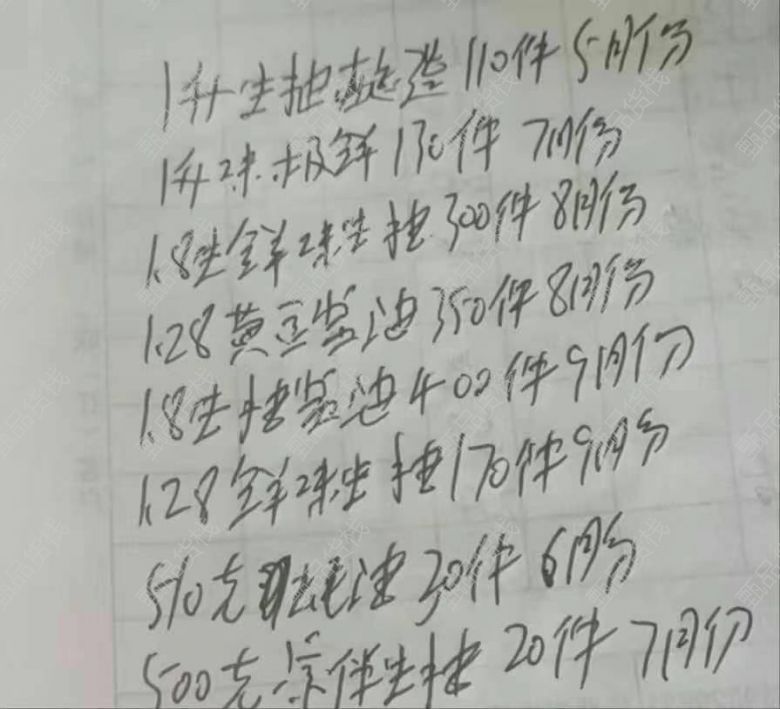 1升生抽 110件 5月份
1升味极鲜 170件 7月份
1.8生鲜味生抽 300件 8月份
1.28黄豆酱油 350件 8月份
1.8生抽酱油 400件 9月份
1.28鲜味生抽 170件 9月份
510克耗油 30件 6月份
500克伴生抽 20件 7月份